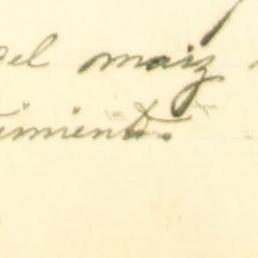 del maiz
imient.